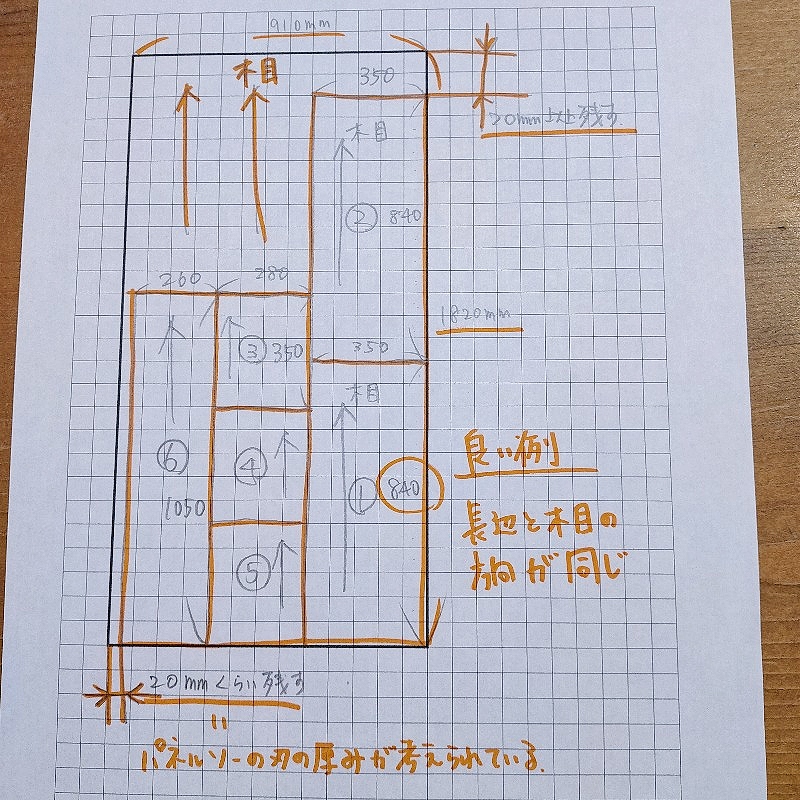 910mm
木目
350
20mm以上残す
木目
② 840
260
280
1820mm
③ 350
350
木目
良い例
⑥
④
① 840
1050
長辺と木目の
方向が同じ
⑤
20mmくらい残す
〃
パネルソーの刃の厚みが考えられている.